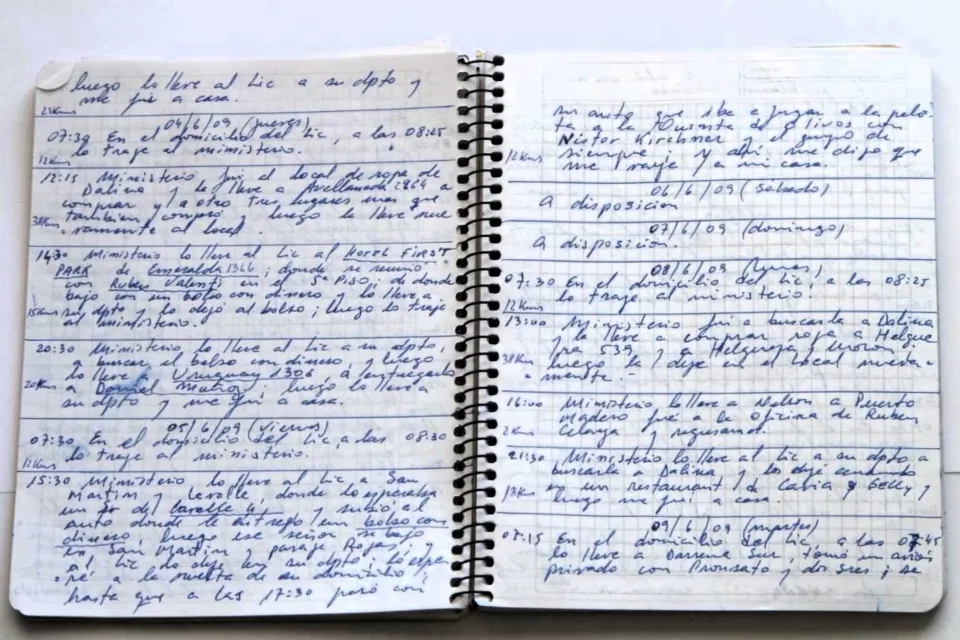 luego lo lleve al Lic a su dpto y
me fui a casa.
21Kms
04/6/09 (jueves)
07:30 En el domicilio del Lic, a las 08:25
lo traje al ministerio.
12Kms
12:15 Ministerio, fui el local de ropa de
Dalina y la lleve a Avellaneda 2964 a
comprar y a otro tres lugares mas que
tambien compro y luego la lleve nue
38Kms vamente al local.
1430 Ministerio lo lleve al Lic al HOTEL FIRST
PARK de Esmeralda 1366; donde se reunio
con Ruben Valenti en el 5º Piso; de donde
bajo con un bolso con dinero y lo lleve a
15Kms su dpto y lo dejo al bolso; luego lo traje
al ministerio.
20:30 Ministerio lo lleve al Lic a su dpto,
a buscar el bolso con dinero y luego
lo lleve Uruguay 1306, a entregarlo
20Kms a Daniel Muñoz; luego lo lleve a
su dpto y me fui a casa.
05/6/09 (viernes)
07:30 En el domicilio del Lic, a las 08:30
lo traje al ministerio.
12Kms
15:30 Ministerio lo lleve al Lic, a San
Martin y Lavalle, donde lo esperaba
un Sr de Lavalle 4 y subio al
auto donde le entrego un bolso con
dinero, luego ese señor se bajo
en San Martin y pasaje Rojas, y
al Lic lo deje en su dpto; lo espe
ré a la vuelta de su domicilio,
hasta que a las 17:30 pasó con
su auto que iba a jugar a la pelo
ta a la Quinta de Olivos con
Néstor Kirchner el grupo de
siempre y ahi me dijo que
12Kms me traje a mi casa.
06/6/09 (sábado)
A disposicion
07/6/09 (domingo)
A disposicion.
08/6/09 (lunes)
07:30 En el domicilio del Lic, a las 08:25
lo traje al ministerio.
12Kms
13:00 Ministerio fui a buscarla a Dalina
y la lleve a comprar ropa a Helgue
ra 539 y a Helguera y Moron,
38Kms luego la deje en el local nueva-
mente.
16:00 Ministerio lo lleve a Nelson a Puerto
Madero fue a la oficina de Ruben
2Kms y regresamos.
21:30 Ministerio lo lleve al Lic a su dpto a
buscarla a Dalina y los dejé cenando
en un restaurant de Cavia y Gelly y
13Kms luego me fui a casa.
09/6/09 (martes)
07:15 En el domicilio del Lic, a las 07:45
lo lleve a Darsena Sur, tomó un avión
privado con y dos sres; se